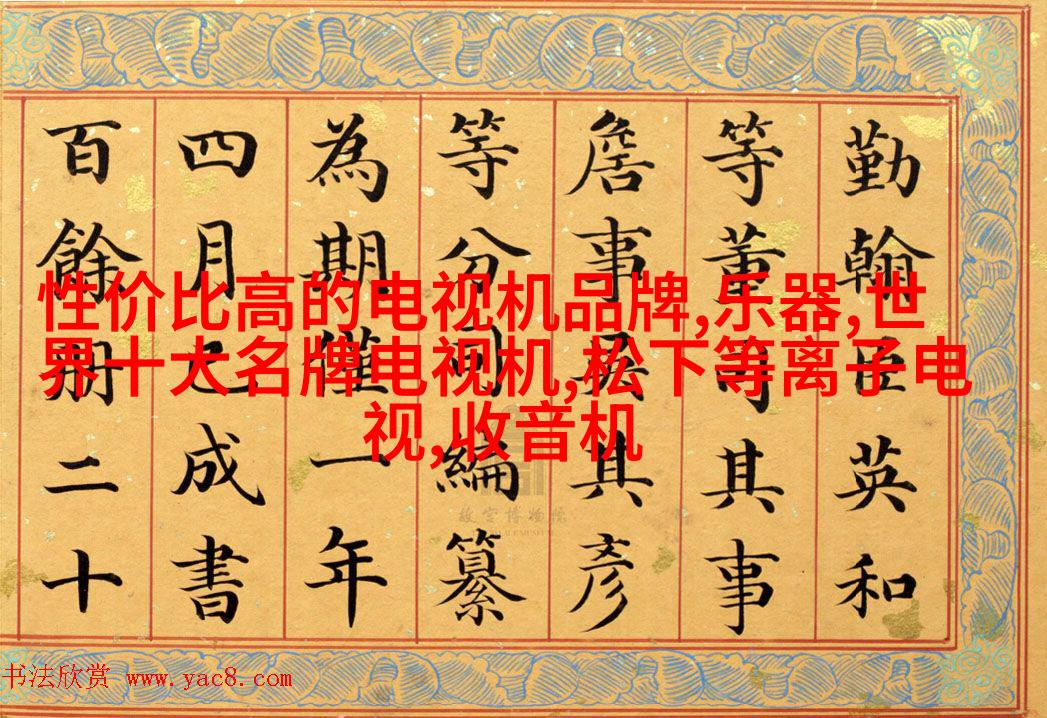 性价比高的电视机品牌,乐器,世
界十大名牌电视机,松下等离子电
视,收音机
勤翰臣英和
等董司其事
詹事吳其彥
等分司編纂
為期一年
四月成書
百餘冊二十
故宫博物院
书法欣赏 www.yac8.com